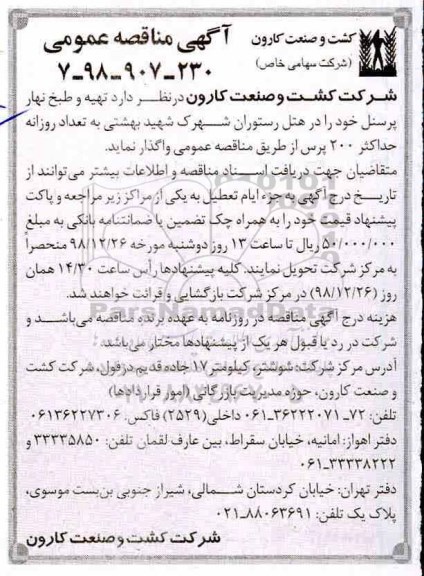 کشت و صنعت کارون
(شرکت سهامی خاص)
آگهی مناقصه عمومی
۷-۹۸-۹۰۷-۲۳۰
شرکت کشت و صنعت کارون در نظر دارد تهیه و طبخ نهار
پرسنل خود را در هتل رستوران شهرک شهید بهشتی به تعداد روزانه
حداکثر ۲۰۰ پرس از طریق مناقصه عمومی واگذار نماید.
متقاضیان جهت دریافت اسناد مناقصه و اطلاعات بیشتر می‌توانند از
تاریخ درج آگهی بجزء ایام تعطیل به یکی از مراکز زیر مراجعه و پاکت
پیشنهاد قیمت خود را به همراه چک تضمین یا ضمانتنامه بانکی به مبلغ
۵۰/۰۰۰/۰۰۰ ریال تا ساعت ۱۳ روز دوشنبه مورخه ۹۸/۱۲/۲۶ منحصراً
به مرکز شرکت تحویل نمایند. کلیه پیشنهادها رأس ساعت ۱۴/۳۰ همان
روز (۹۸/۱۲/۲۶) در مرکز شرکت بازگشایی و قرائت خواهند شد.
هزینه درج آگهی مناقصه در روزنامه به عهده برنده مناقصه می‌باشد و
شرکت در رد یا قبول هر یک از پیشنهادها مختار می‌باشد.
آدرس مرکز شرکت: شوشتر، کیلومتر ۱۷ جاده قدیم دزفول، شرکت کشت
و صنعت کارون، حوزه مدیریت بازرگانی (امور قراردادها)
تلفن: ۷۲-۳۶۲۲۲۰۷۱-۰۶۱ داخلی (۲۵۲۹) فاکس: ۰۶۱۳۶۲۲۷۳۰۶
دفتر اهواز: امانیه، خیابان سقراط، بین عارف لقمان تلفن: ۳۳۳۳۵۸۵۰ و
۳۳۳۳۸۲۲۲-۰۶۱
دفتر تهران: خیابان کردستان شمالی، شیراز جنوبی بن‌بست موسوی،
پلاک یک تلفن: ۸۸۰۶۳۶۹۱-۰۲۱
شرکت کشت و صنعت کارون